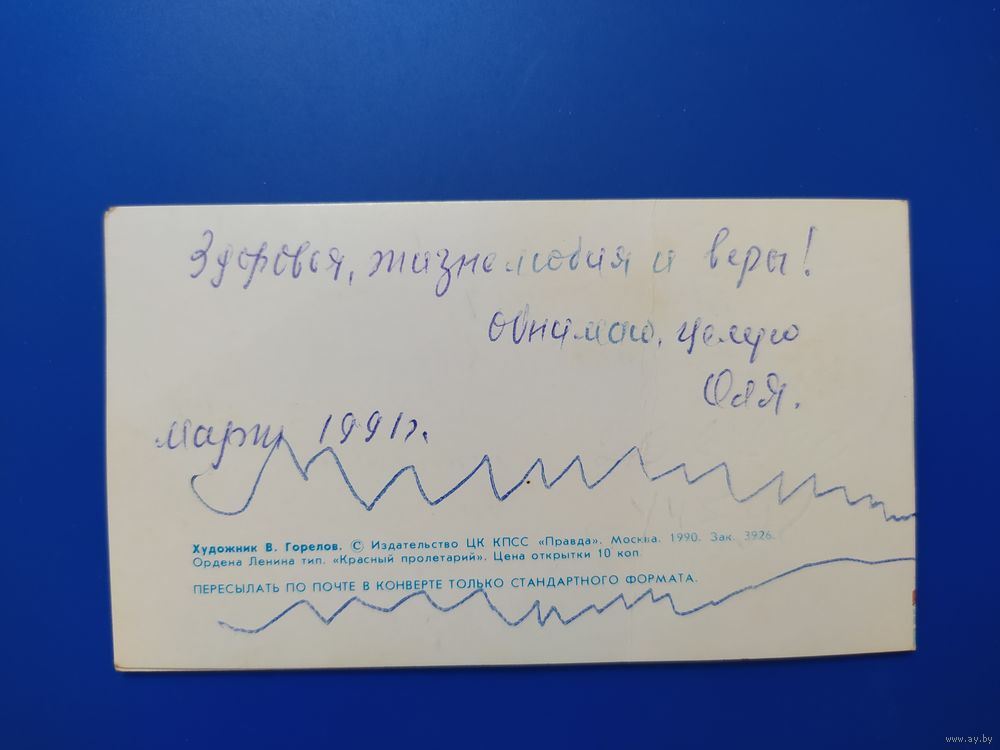 Здоровья, жизнелюбия и веры!
Обнимаю, целую
Оля.
март 1991г.
Художник В. Горелов. © Издательство ЦК КПСС «Правда». Москва. 1990. Зак. 3926.
Ордена Ленина тип. «Красный пролетарий». Цена открытки 10 коп.
ПЕРЕСЫЛАТЬ ПО ПОЧТЕ В КОНВЕРТЕ ТОЛЬКО СТАНДАРТНОГО ФОРМАТА.
www.ay.by